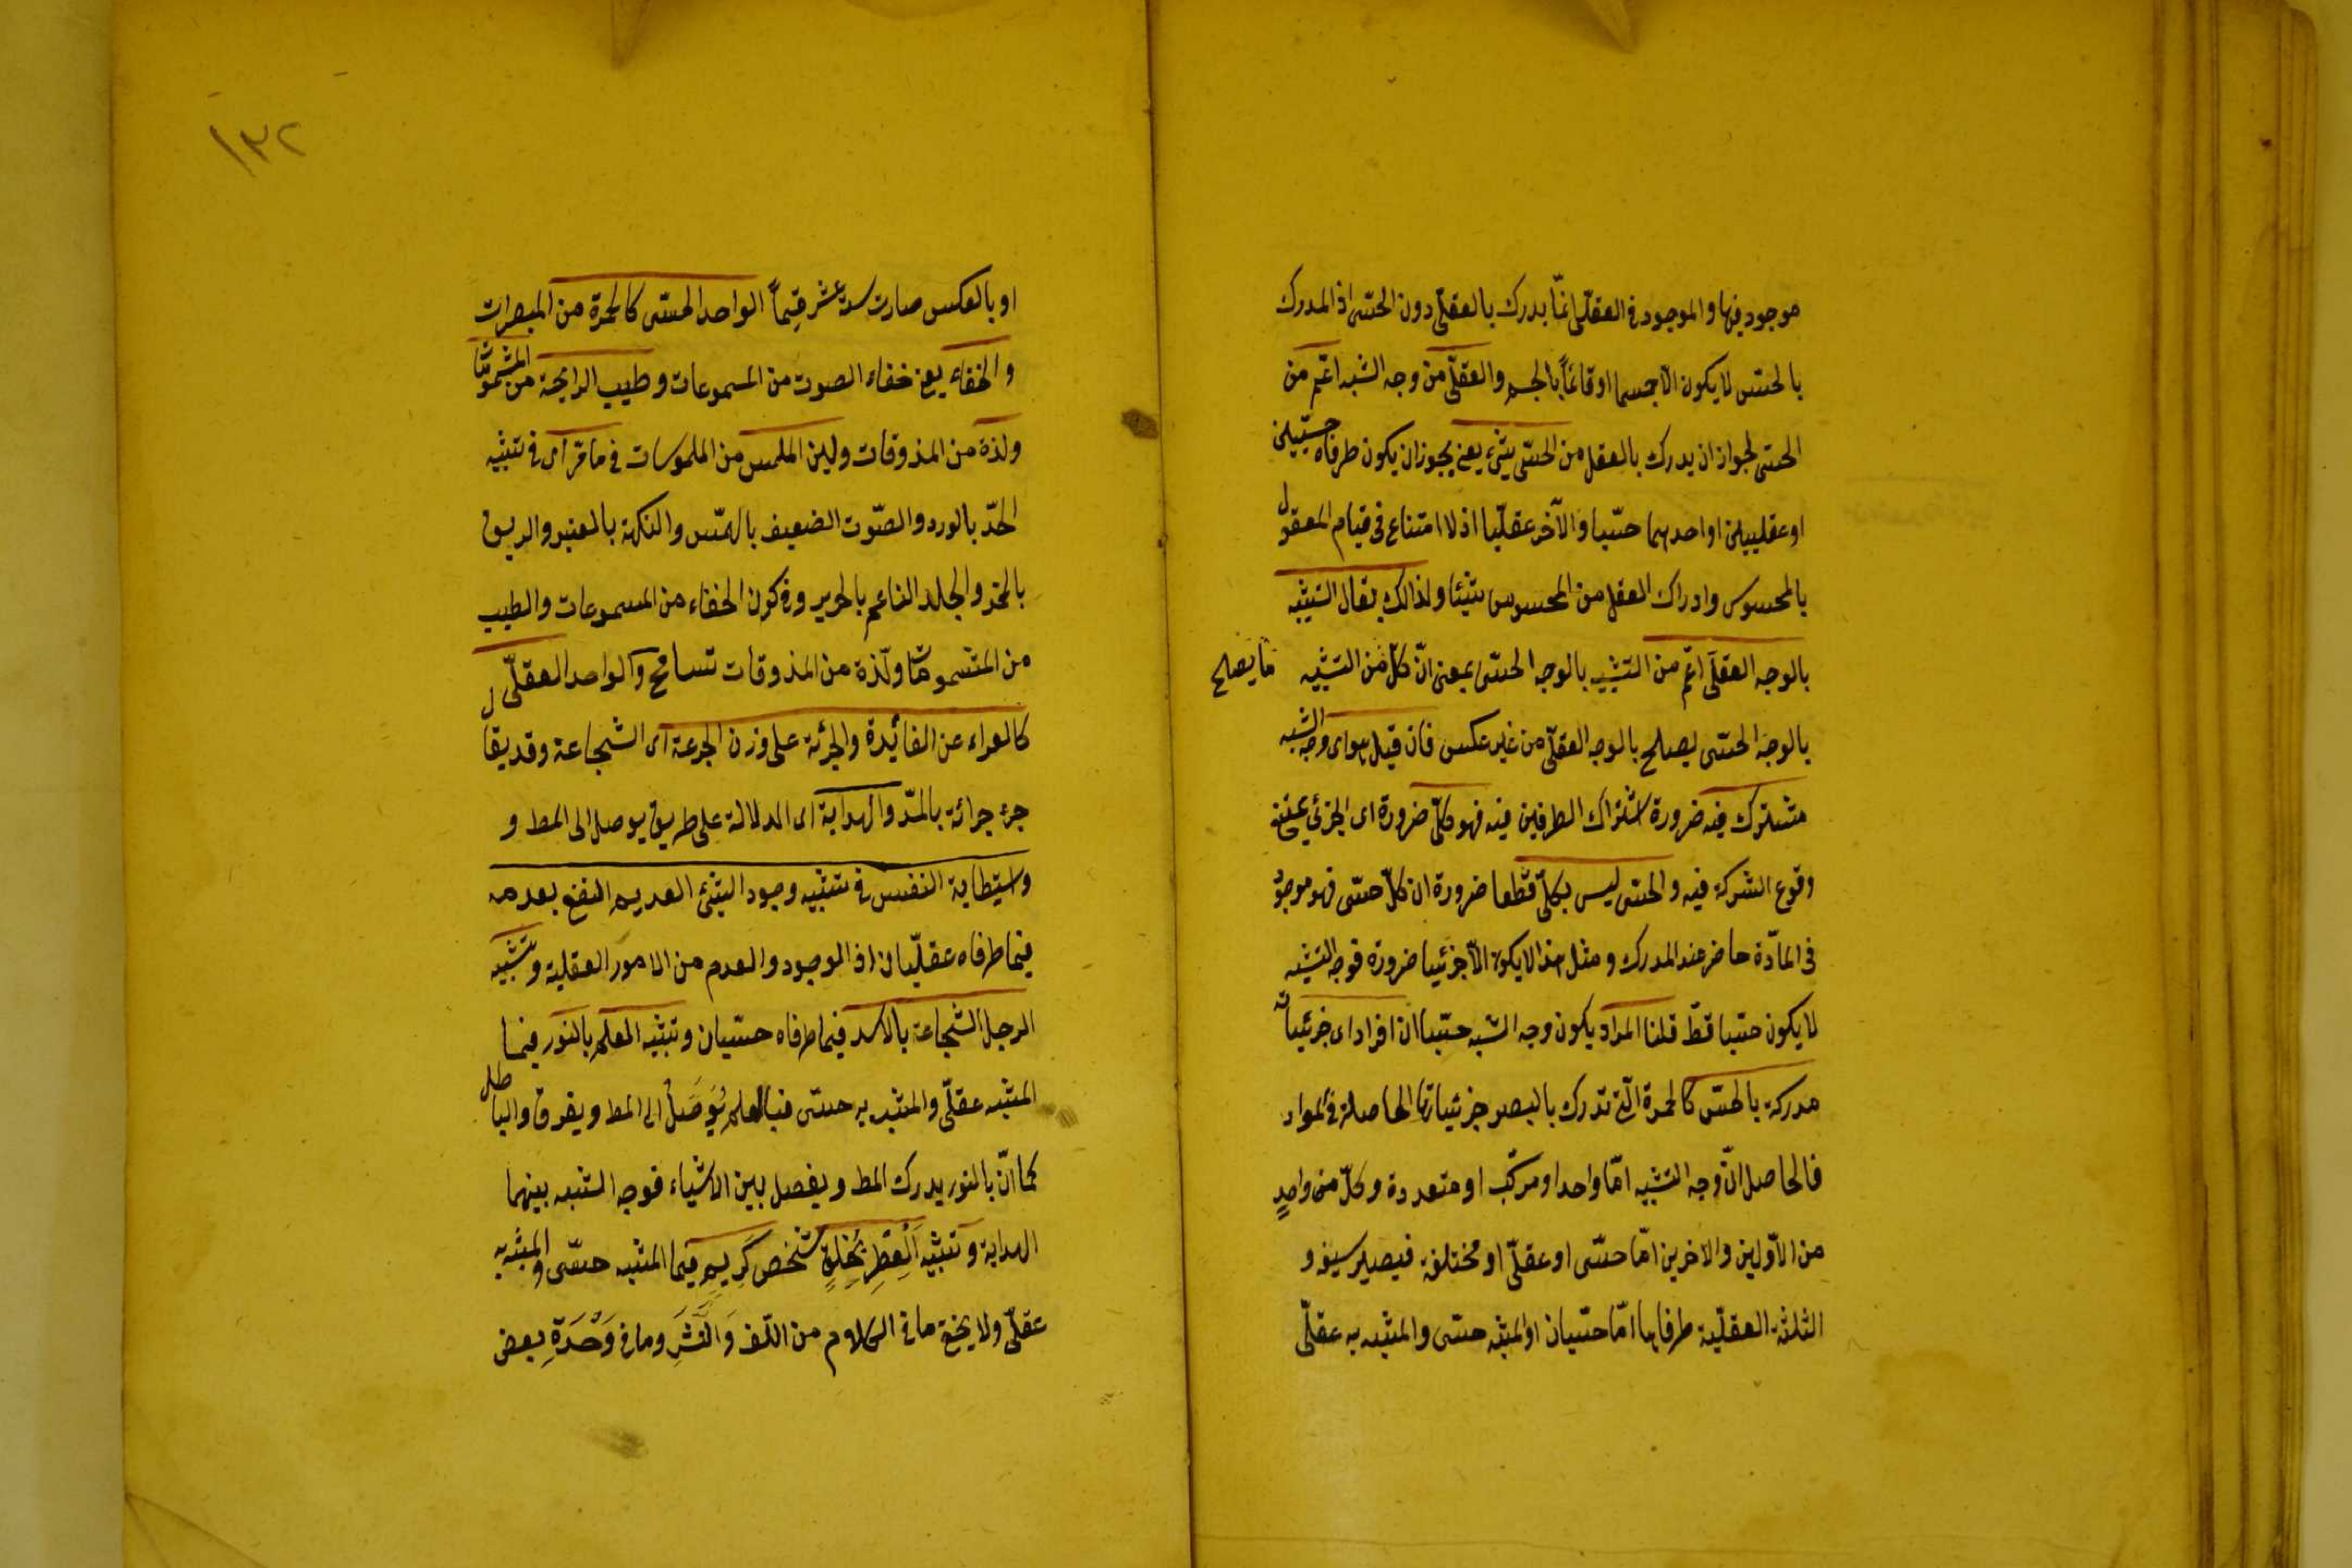 موجود فيها والموجود في العقلي انما يدرك بالعقلي دون الحسي اذ المدرك
بالحس لا يكون الا جسما او قائماً بالجسم والعقلي من وجه الشبه اعم من
الحسي لجواز ان يدرك بالعقل من الحسي شيء يعني يجوز ان يكون طرفاه حسيين
او عقليين او احدهما حسيا والآخر عقليا اذ لا امتناع في قيام المعقول
بالمحسوس وادراك العقل من المحسوس شيئا ولذالك يقال التشبيه
بالوجه العقلي اعم من التشبيه بالوجه الحسي بمعنى ان كل من التشبيه ما يصلح
بالوجه الحسي يصلح بالوجه العقلي من غير عكس فان قيل هو اى وجه الشبه
مشترك فيه ضرورة اشتراك الطرفين فيه فهو كلي ضرورة اى الجزئي يمتنع
وقوع الشركة فيه والحسي ليس بكلي قطعا ضرورة ان كل حسي فهو موجود
في المادة حاضر عند المدرك ومثل هذا لا يكون الا جزئيا ضرورة فوجه التشبيه
لا يكون حسيا قط قلنا المراد يكون وجه الشبه حسيا ان افراد اى جزئياته
مدركة بالحس كالحمرة التي تدرك بالبصر جزئياتها الحاصلة في المواد
فالحاصل ان وجه التشبيه اما واحد او مركب او متعددة وكل من واحدٍ
من الاولين والاخرين اما حسي او عقلي او مختلفة فيصير سبعة و
الثلثة العقلية طرفاها اما حسيان او المشبه حسي والمشبه به عقلي
١٣٢
او بالعكس صارت ستة عشر قسماً الواحد الحسي كالحمرة من المبصرات
والخفاء يعني خفاء الصوت من المسموعات وطيب الرايحة من المشمومات
ولذة من المذوقات ولين الملمس من الملموسات في ما مر اى في تشبيه
الخد بالورد والصوت الضعيف بالهمس والنكهة بالعنبر والريق
بالخمر والجلد الناعم بالحرير وفي كون الخفاء من المسموعات والطيب
من المشمومات ولذة من المذوقات تسامح والواحد العقلي
كالعراء عن الفائدة والجرئة على وزن الجرعة اى الشجاعة وقد يقال
جرء جرائة بالمد والهداية اى الدلالة على طريق يوصل الى المط و
واستطابة النفس في تشبيه وجود الشئ العديم النفع بعدمه
فيما طرفاه عقليان اذ الموجود والعدم من الامور العقلية وتشبيه
الرجل الشجاعة بالاسد فيما طرفاه حسيان وتشبيه العلم بالنور فيما
المشبه عقلي والمشبه به حسي فبالعلم يُوَصَلُ الى المط ويفرق والباطل
كما ان بالنور يدرك المط ويفصل بين الاشياء فوجه الشبه بينهما
الهداية وتشبيه اَلْعِطْرِ بِخُلقٍ شخص كَرِيمٍ فيما المشبه حسي والمشبه به
عقلي ولا يخفى ما في الكلام من اللف وَالنَّشَرِ وما في وَحْدَةِ بعض